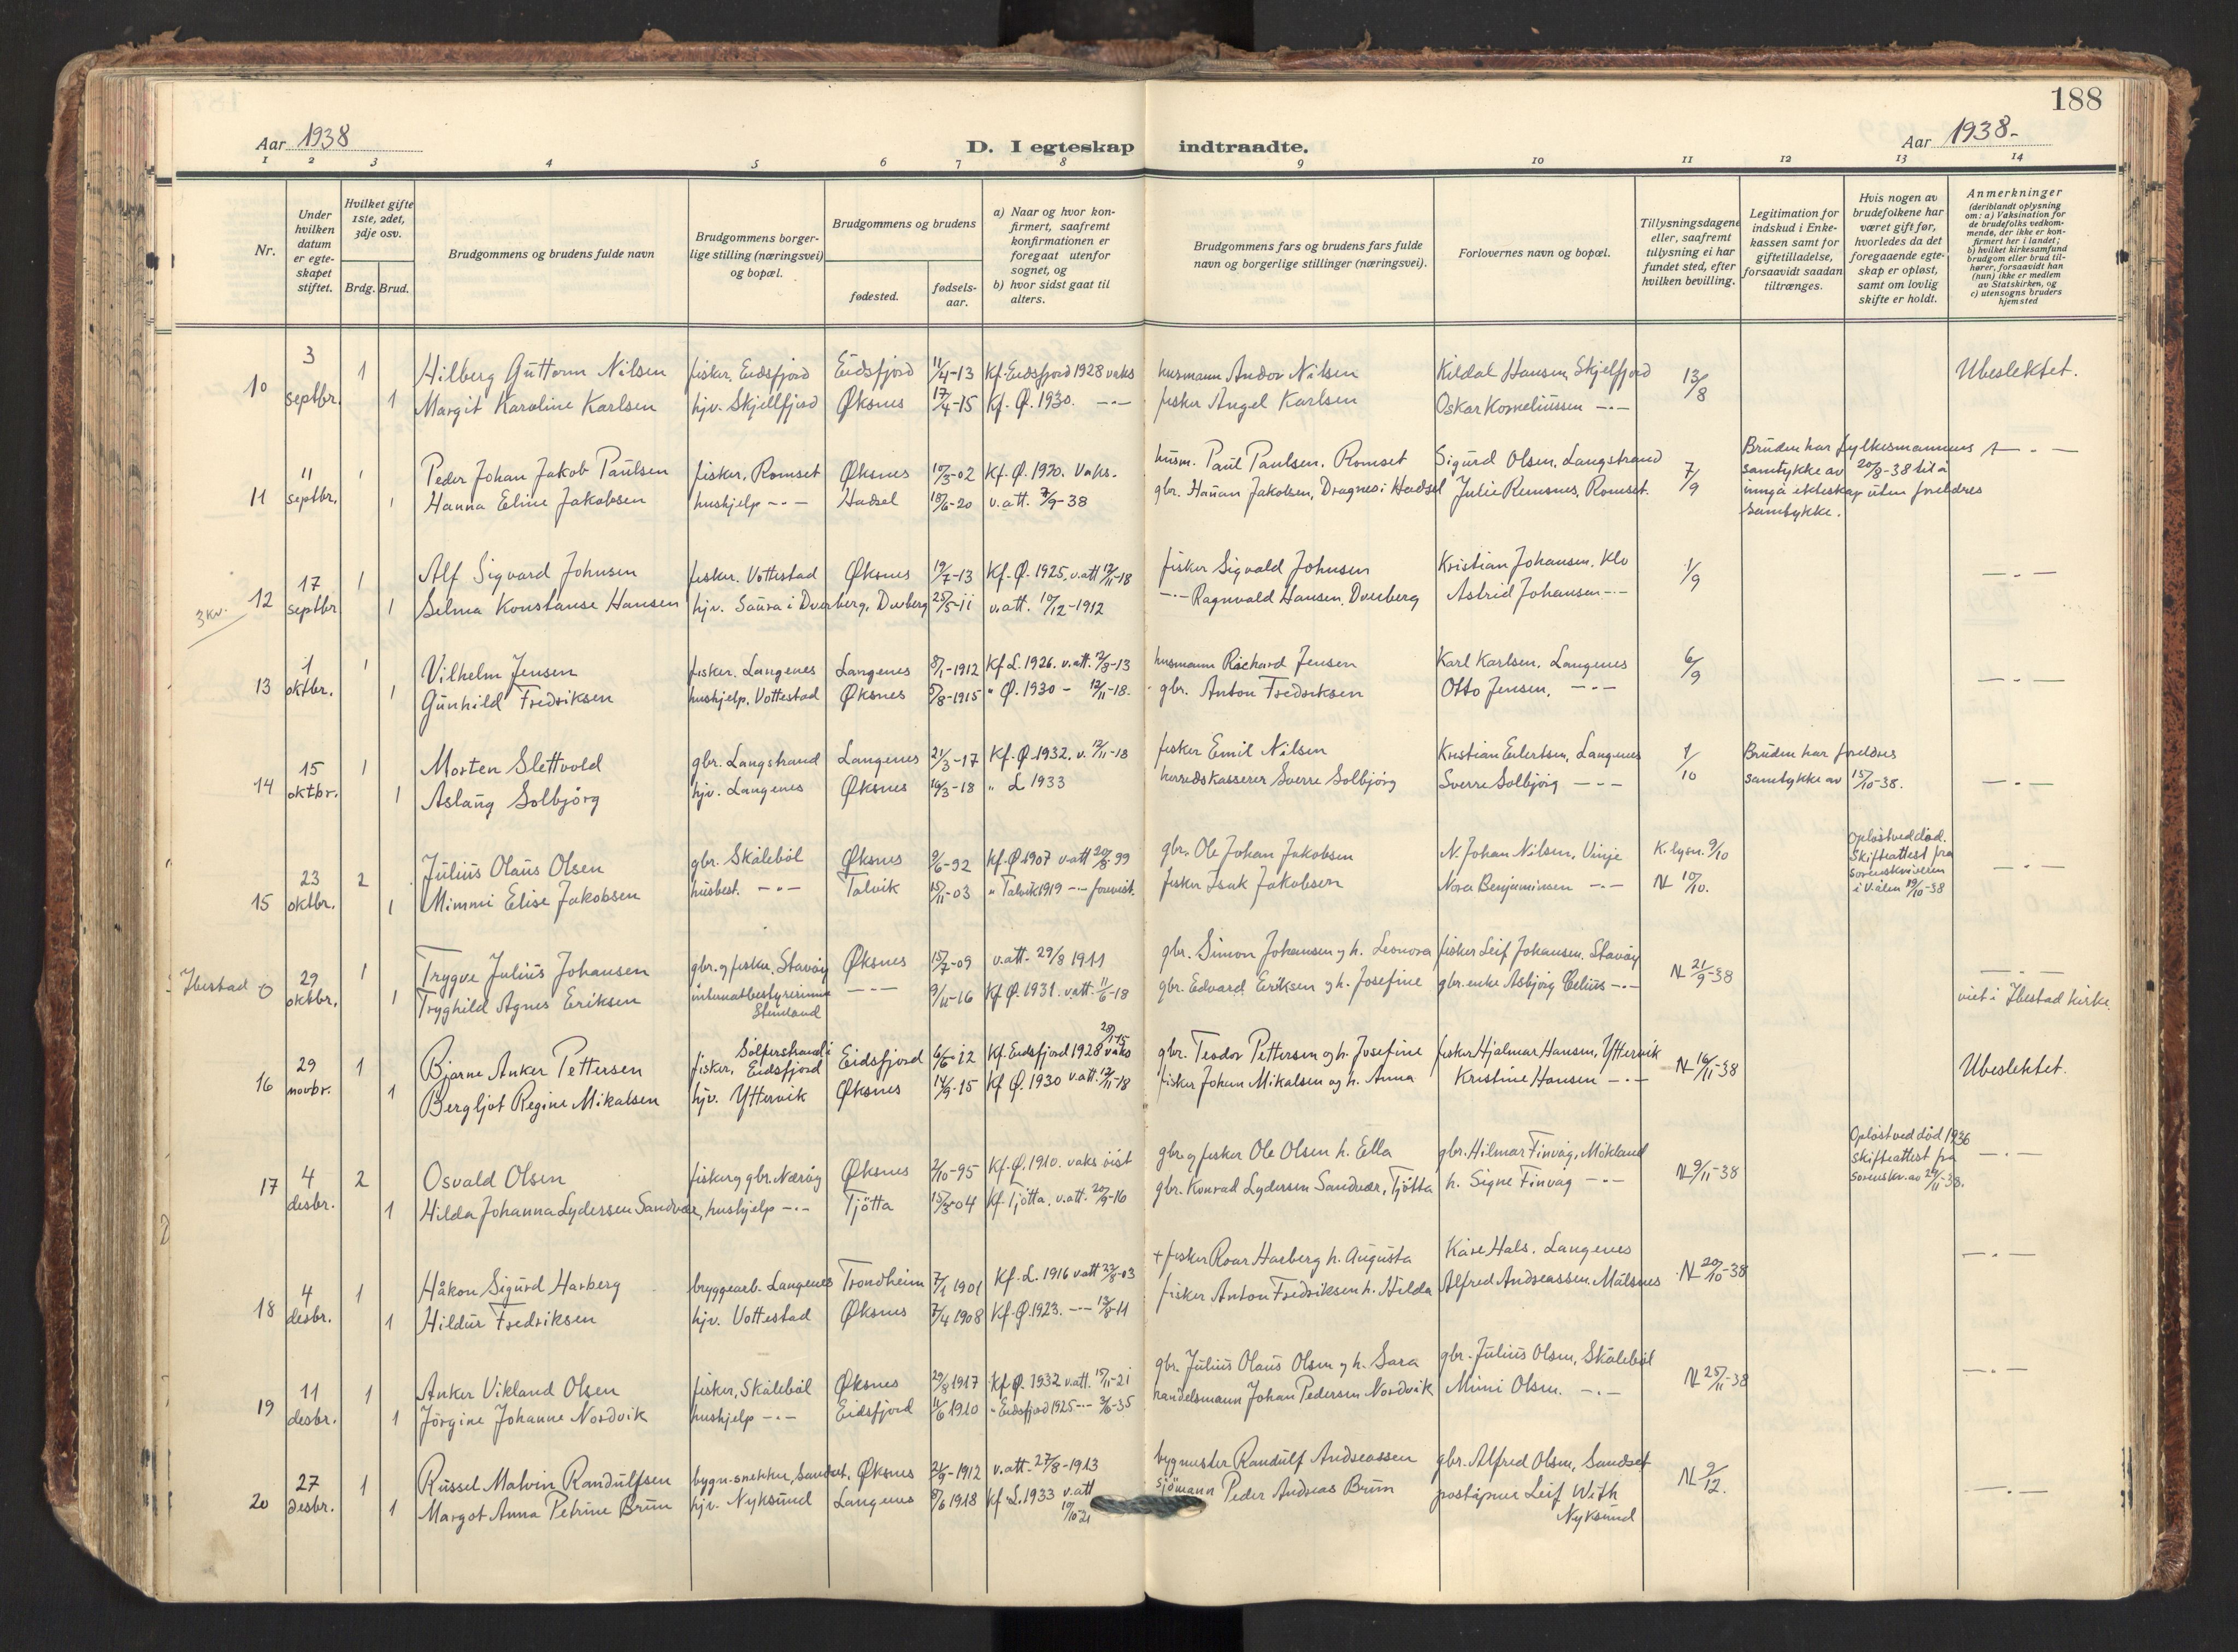 188
Aar 1938
D. I egteskap indtraadte.
Aar 1938-
1 2 3 4 5 6 7 8 9 10 11 12 13 14
Nr.
Under hvilken datum er egteskapet stiftet.
Hvilket gifte 1ste, 2det, 3dje osv.
Brdg. Brud.
Brudgommens og brudens fulde navn
Brudgommens borgerlige stilling (næringsvei) og bopæl.
Brudgommens og brudens
fødested.
fødselsaar.
a) Naar og hvor konfirmert, saafremt konfirmationen er foregaat utenfor sognet, og
b) hvor sidst gaat til alters.
Brudgommens fars og brudens fars fulde navn og borgerlige stillinger (næringsvei).
Forlovernes navn og bopæl.
Tillysningsdagene eller, saafremt tillysning ei har fundet sted, efter hvilken bevilling.
Legitimation for indskud i Enkekassen samt for giftetilladelse, forsaavidt saadan tiltrænges.
Hvis nogen av brudefolkene har været gift før, hvorledes da det foregaaende egteskap er opløst, samt om lovlig skifte er holdt.
Anmerkninger
(deriblandt oplysning om: a) Vaksination for de brudefolks vedkommende, der ikke er konfirmert her i landet;
b) hvilket kirkesamfund brudgom eller brud tilhører, forsaavidt han (hun) ikke er medlem av Statskirken, og
c) utensogns bruders hjemsted
10 3 septbr. 1 Hilberg Guttorm Nilsen fisker, Eidsfjord Eidsfjord 11/4-13 Kf. Eidsfjord 1928 vaks husmann Andor Nilsen Kildal Hansen, Skjelfjord 13/8 Ubeslektet.
1 Margit Karoline Karlsen hjv. Skjellfjord Øksnes 17/4-15 Kf. Ø. 1930. -"- fisker Angel Karlsen Oskar Korneliussen -"-
11 11 septbr. 1 Peder Johan Jakob Paulsen fisker, Romset Øksnes 10/3-02 Kf. Ø. 1920. Vaks. husm. Paul Paulsen, Romset Sigurd Olsen, Langstrand 7/9 Bruden har fylkesmannens samtykke av 20/8-38 til å inngå ekteskap uten foreldres samtykke. -"-
1 Hanna Eline Jakobsen hushjelp -"- Hadsel 18/6-20 v.att. 7/9-38 gbr. Hanan Jakobsen, Dragnes i Hadsel Julie Remsnes, Romset.
3 kv. 12 17 septbr. 1 Alf Sigvard Johnsen fisker. Vottestad Øksnes 19/7-13 Kf. Ø. 1925. v.att 12/11-18 fisker Sigvald Johnsen Kristian Johansen, Klo 1/9 -"-
1 Selma Konstanse Hansen hjv. Saura i Dverberg, Dverberg 25/5-11 v.att. 10/12-1912 -"- Ragnvald Hansen, Dverberg Astrid Johansen -"-
13 1 oktbr. 1 Vilhelm Jensen fisker. Langenes Langenes 8/1-1912 Kf L. 1926. v.att. 12/8-13 husmann Richard Jensen Karl Karlsen, Langenes 6/9 -"-
1 Gunhild Fredriksen hushjelp, Vottestad Øksnes 5/8-1915 " Ø. 1930 - 12/11-18. gbr. Anton Fredriksen Otto Jensen. -"-
14 15 oktbr. 1 Morten Slettvold gbr. Langstrand Langenes 21/3-17 Kf. Ø. 1932. v. 12/11-18 fisker Emil Nilsen Kristian Eilertsen, Langenes 1/10 Bruden har foreldres samtykke av 15/10-38. -"-
1 Aslaug Solbjørg hjv. Langenes Øksnes 16/3-18 " L 1933 herredskasserer Sverre Solbjørg Sverre Solbjørg -"-
15 23 oktbr. 2 Julius Olaus Olsen gbr. Skålebøl Øksnes 9/6-92 Kf. Ø 1907 v.att 20/8-99 gbr. Ole Johan Jakobsen N. Johan Nilsen, Vinje K. lysn. 9/10 Opløst ved død. Skifteattest fra sorenskriveren i V.ålen 19/10-38 -"-
1 Mimmi Elise Jakobsen husbest. -"- Talvik 15/11-03 " Talvik 1919 -"- forevist. fisker Isak Jakobsen Nora Benjaminsen -"- N 10/10.
Ibestad 0 29 oktbr. 1 Trygve Julius Johansen gbr. og fisker, Stavøy Øksnes 15/7-09 v.att. 29/8 1911 gbr. Simon Johansen og h. Leonora fisker Leif Johansen, Stavøy N 21/9-38 -"-
1 Tryghild Agnes Eriksen internatbestyrerinne Stenland -"- 9/11-16 Kf Ø. 1931. v.att. 11/6-18 gbr. Edvard Eriksen og h. Josefine gbr. enke Asbjørg Celius -"- viet i Ibestad kirke.
16 29 novbr. 1 Bjarne Anker Pettersen fisker, Sølferstrand i Eidsfjord Eidsfjord 6/6-12 Kf. Eidsfjord 1928 vaks 20/7-15 gbr. Teodor Pettersen og h. Josefine fisker Hjalmar Hansen, Yttervik N 16/11-38 Ubeslektet.
1 Bergljot Regine Mikalsen hjv. Yttervik Øksnes 14/9-15 Kf Ø. 1930 v.att. 12/11-18 fisker Johan Mikalsen og h. Anna Kristine Hansen -"-
17 4 desbr. 2 Osvald Olsen fisker og gbr. Nærøy Øksnes 2/10-95 Kf. Ø. 1910. vaks vist gbr. og fisker Ole Olsen h. Ella gbr. Hilmar Finvåg, Mokland N 9/11-38 Opløst ved død 1936 Skifteattest fra sorenskr. av 29/11-38. -"-
1 Hilda Johanna Lydersen Sandvær, hushjelp -"- Tjøtta 15/3-04 Kf. Tjøtta, v.att. 20/9-16 gbr. Konrad Lydersen Sandvær, Tjøtta h. Signe Finvåg -"-
18 4 desbr. 1 Håkon Sigurd Harberg bryggearb. Langenes Trondheim 7/1 1901 Kf. L. 1916 v.att 22/8-03 + fisker Roar Harberg h. Augusta Kåre Hals. Langenes N 20/10-38 -"-
1 Hildur Fredriksen hjv. Vottestad Øksnes 7/4 1908 Kf. Ø. 1923. -"- 13/8-11 fisker Anton Fredriksen h. Hilda Alfred Andreassen. Målsnes
19 11 desbr. 1 Anker Vikland Olsen fisker, Skålebøl Øksnes 29/8 1917 Kf. Ø. 1932 v.att. 15/11-21 gbr. Julius Olaus Olsen og h. Sara gbr. Julius Olsen, Skålebøl N 25/11-38 -"-
1 Jørgine Johanne Nordvik hushjelp -"- Eidsfjord 11/6 1910 " Eidsfjord 1925 -"- 3/6-35 handelsmann Johan Pedersen Nordvik Mimi Olsen. -"-
20 27 desbr. 1 Russel Malvin Randulfsen bygn-snekker, Sandset. Øksnes 21/9-1912 v.att. 27/8-1913 bygmester Randulf Andreassen gbr. Alfred Olsen, Sandset N 9/12. -"-
1 Margot Anna Petrine Brun hjv. Nyksund Langenes 8/6 1918 Kf. L. 1933 v.att 19/10-21 sjømann Peder Andreas Brun poståpner Leif With Nyksund